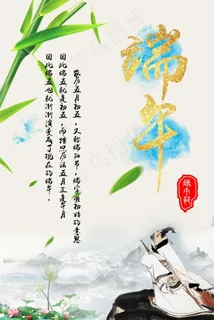 端午
端午节
农历五月初五，又称端阳节，端字有初始的意思
因此端五也就是初五，而按照历法五月正是午月
因此端五也就渐渐演变为了现在的端午。